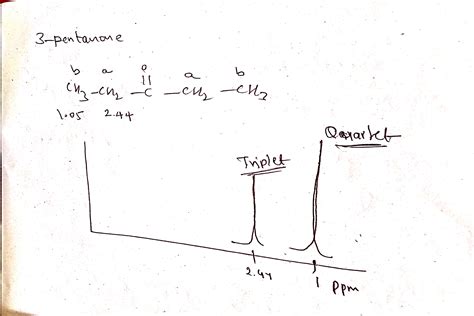 3-pentanone
b a O a b
CH3-CH2-C-CH2-CH3
1.05 2.44
Quartet
Triplet
2.44 1 ppm